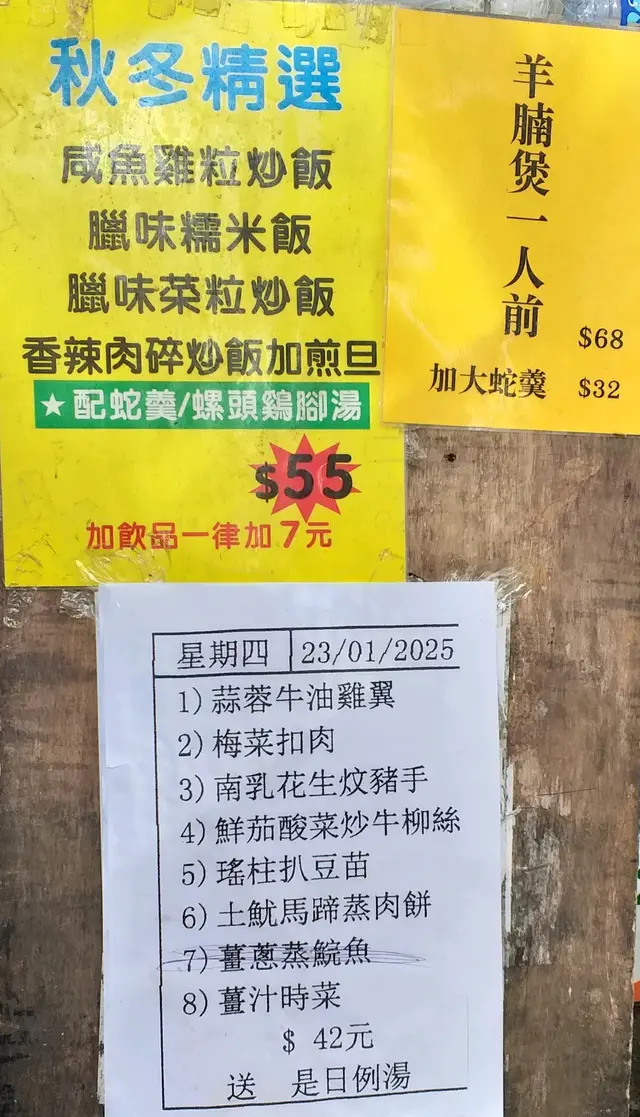 秋冬精選
咸魚雞粒炒飯
臘味糯米飯
臘味菜粒炒飯
香辣肉碎炒飯加煎旦
★配蛇羹/螺頭鷄腳湯
$55
加飲品一律加7元
羊腩煲一人前
$68
加大蛇羹 $32
星期四 23/01/2025
1) 蒜蓉牛油雞翼
2) 梅菜扣肉
3) 南乳花生炆豬手
4) 鮮茄酸菜炒牛柳絲
5) 瑤柱扒豆苗
6) 土魷馬蹄蒸肉餅
7) 薑蔥蒸鯇魚
8) 薑汁時菜
$ 42元
送 是日例湯